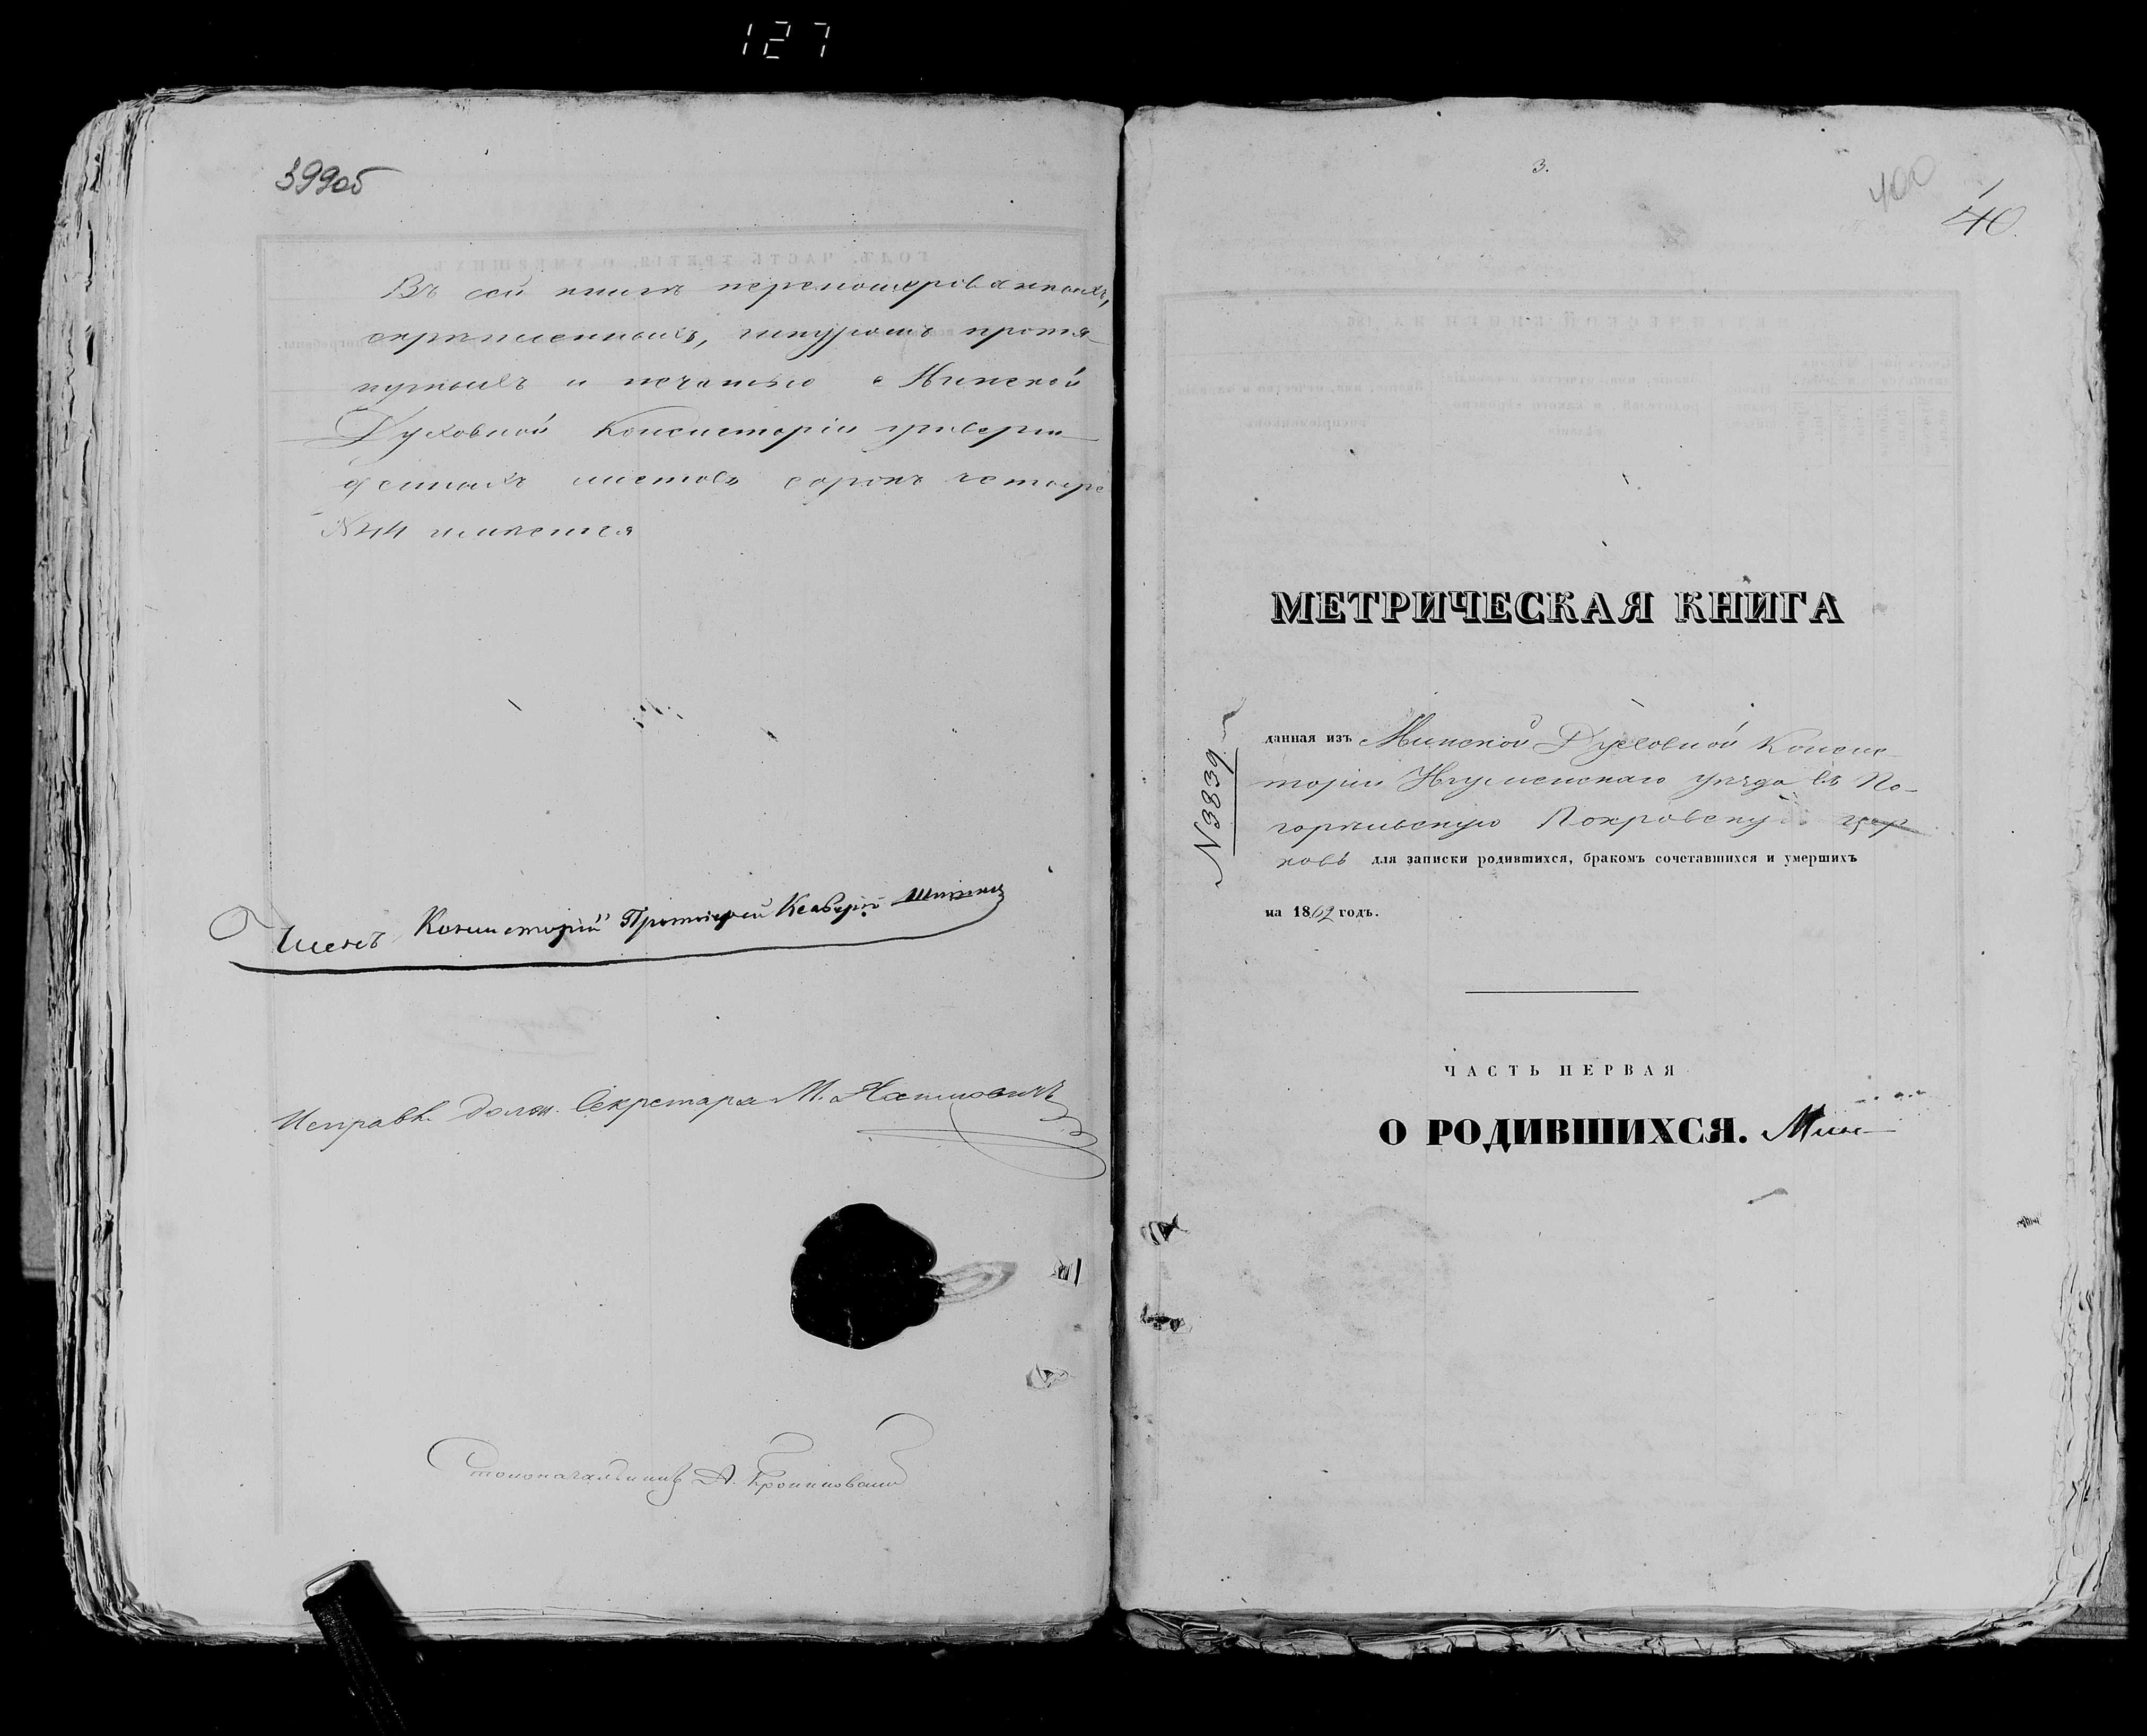 127
399об
Въ сей книгѣ перенумерованныхъ,
скрѣпленныхъ, шнуромъ протя-
нутыхъ и печатью Минской
Духовной Консисторіи утверж-
денныхъ листовъ сорокъ четыре
№ 44 имѣется
Членъ Консисторіи Протоіерей Ксаверій
Исправл. должн. Секретаря М.
Столоначальникъ А.
3.
400
40
МЕТРИЧЕСКАЯ КНИГА
№3839
данная изъ Минской Духовной Консис-
торіи Игуменскаго уѣзда въ По-
горѣльскую Покровскую цер
ковь для записки родившихся, бракомъ сочетавшихся и умершихъ
на 1862 годъ.
ЧАСТЬ ПЕРВАЯ
О РОДИВШИХСЯ.